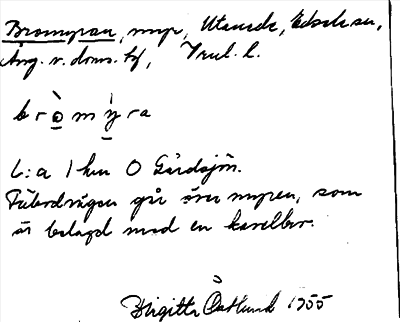 Bromyran, myr, Utanede, Edsele sn,
Ång. v. doms. tf, Vnl. l.
b r o m y r a
L:a 1 km O Gårdsjön.
Fäbodvägen går över myren, som
är belagd med en kavelbro.
Birgitta Östlund 1955